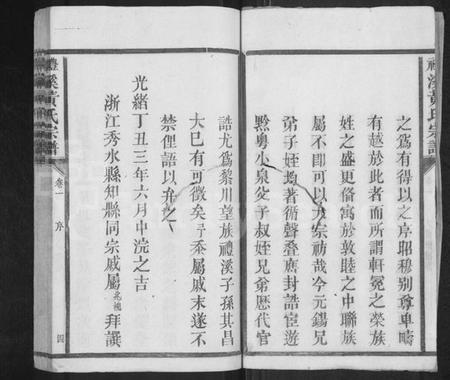 禮溪黃氏宗譜
之爲有得以之序昭穆別尊卑疇
有越於此者而所謂軒冕之榮族
姓之盛更僑寓於敦睦之中聯族
屬不即可以亢宗祊哉今元鍚兄
弟子姪均著循聲叠膺封誥宦遊
黔粵小泉父子叔姪兄弟歷代官
誥尤爲黎川望族禮溪子孫其昌
大已有可徵矣予忝屬戚末遂不
禁俚語以弁之
光緒丁丑三年六月中浣之吉
浙江秀水縣知縣同宗戚屬 拜譔
禮溪黃氏宗譜
卷一
序
四